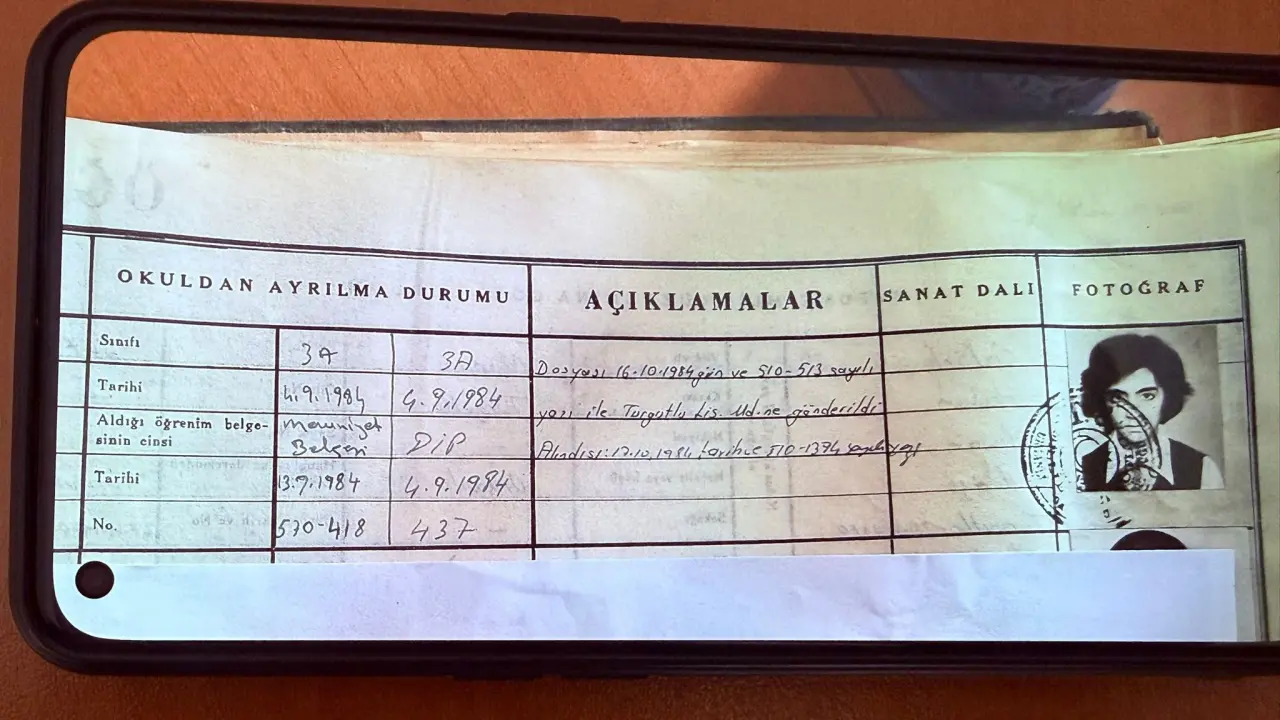 OKULDAN AYRILMA DURUMU
AÇIKLAMALAR
SANAT DALI
FOTOĞRAF
Sınıfı 3A 3A
Tarihi 4.9.1984 4.9.1984
Aldığı öğrenim belge-
sinin cinsi
Mezuniyet
Belgesi DİP
Tarihi 13.9.1984 4.9.1984
No. 510-418 437
Dosyası 16.10.1984 gün ve 510-513 sayılı
yazı ile Turgutlu Lis. Md.ne gönderildi
1984 510-1374